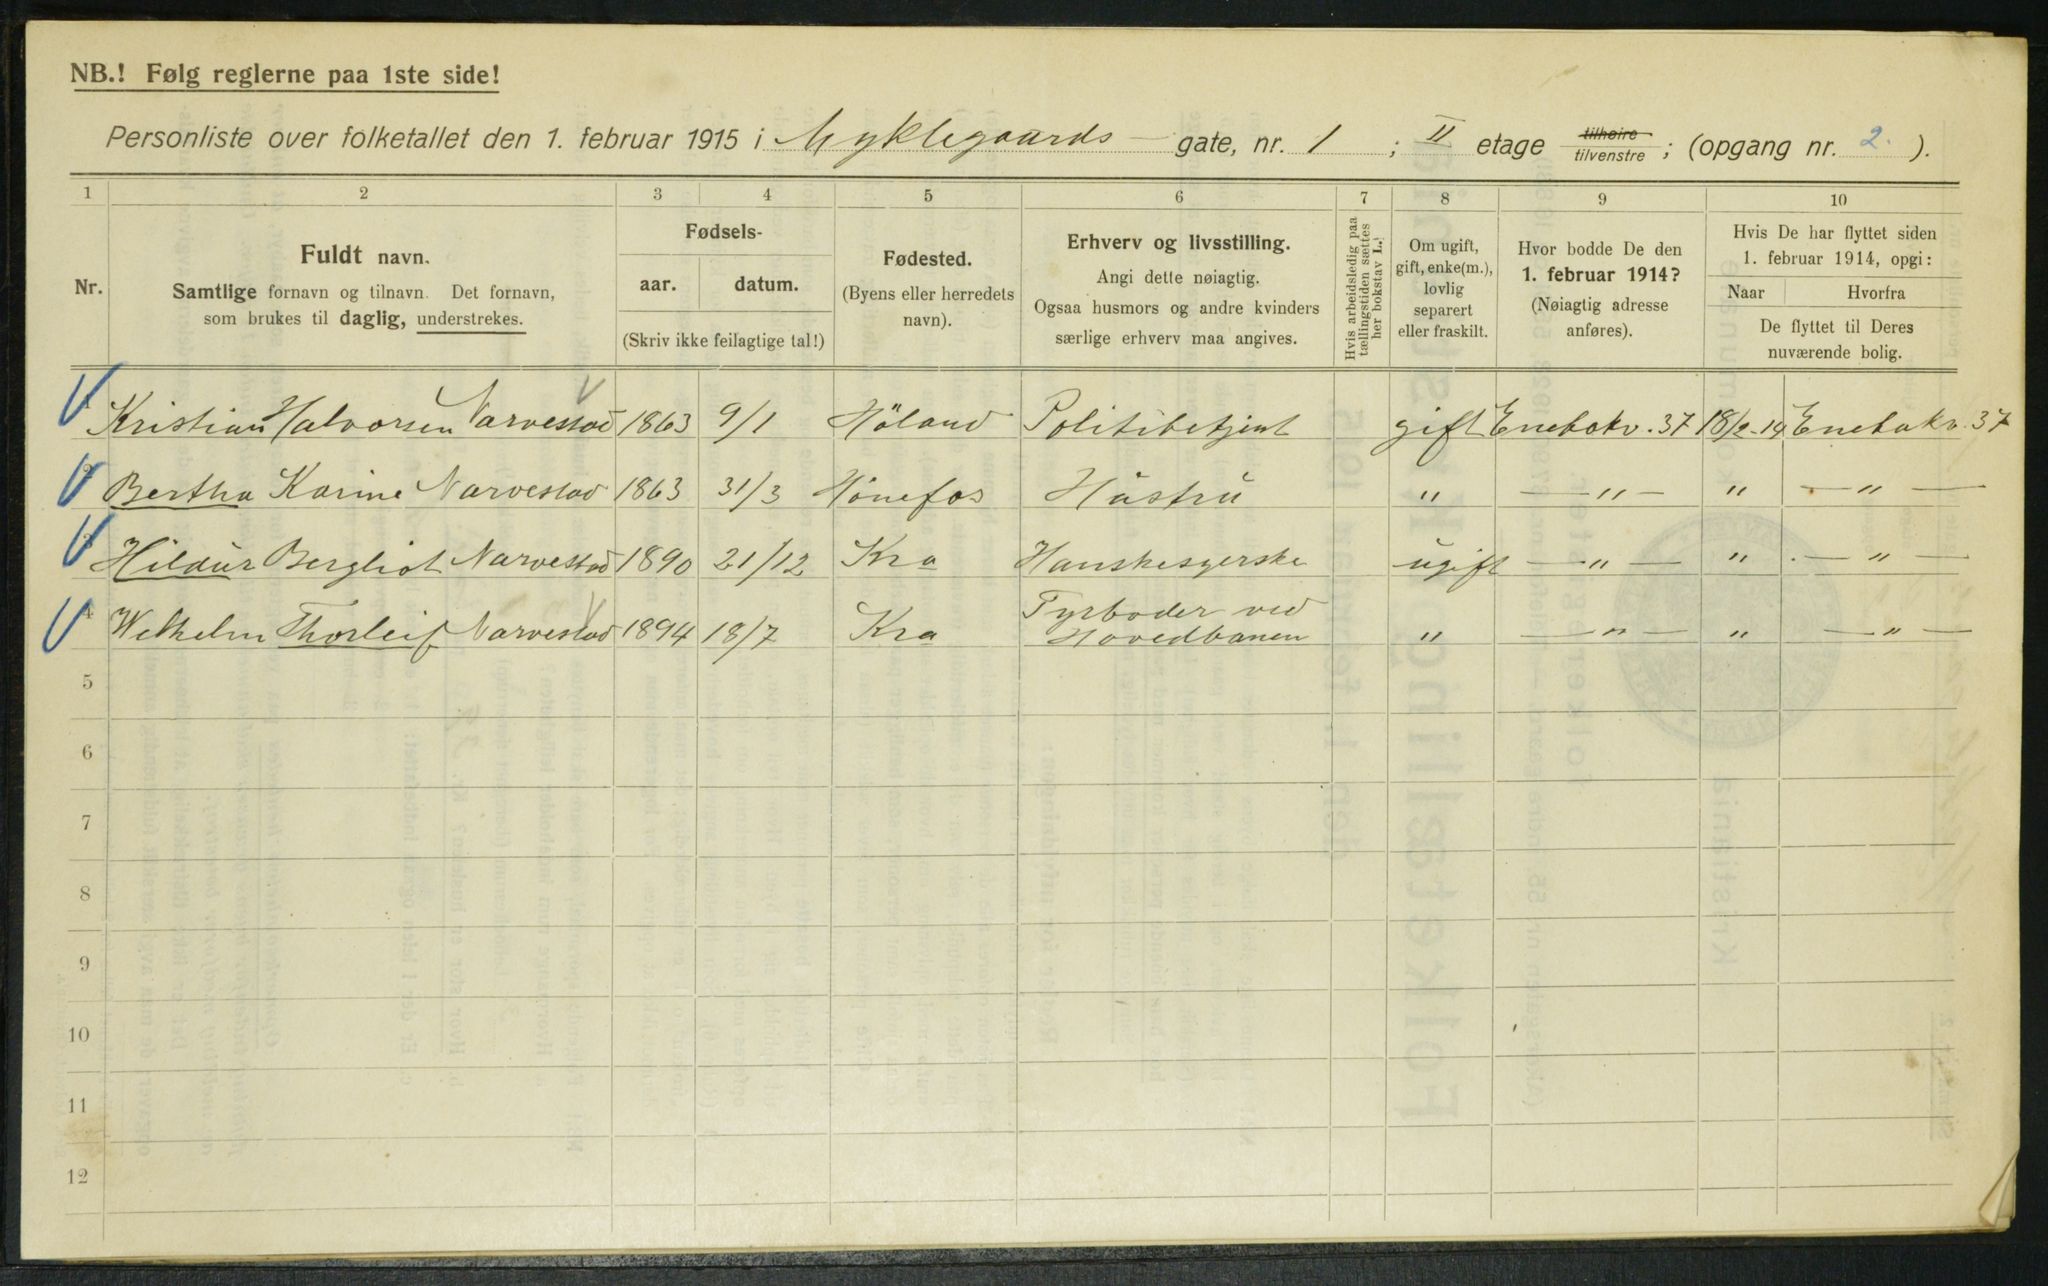 NB.! Følg reglerne paa 1ste side!
Personliste over folketallet den 1. februar 1915 i Myklegaards — gate, nr. 1 ; II etage tilhøire tilvenstre ; (opgang nr. 2. ).
1 2 3 4 5 6 7 8 9 10
Nr.
Fuldt navn.
Samtlige fornavn og tilnavn. Det fornavn,
som brukes til daglig, understrekes.
Fødsels-
aar. datum.
(Skriv ikke feilagtige tal!)
Fødested.
(Byens eller herredets
navn).
Erhverv og livsstilling.
Angi dette nøiagtig.
Ogsaa husmors og andre kvinders
særlige erhverv maa angives.
Hvis arbeidsledig paa
tællingstiden sættes
her bokstav L.
Om ugift,
gift, enke(m.),
lovlig
separert
eller fraskilt.
Hvor bodde De den
1. februar 1914?
(Nøiagtig adresse
anføres).
Hvis De har flyttet siden
1. februar 1914, opgi:
Naar Hvorfra
De flyttet til Deres
nuværende bolig.
1 Kristian Halvorsen Narvestad 1863 9/1 Höland Politibetjent gift Enebakv. 37 18/2-14 Enebakv. 37
2 Bertha Karine Narvestad 1863 31/3 Hönefos Hüstrü " — " — " — " —
3 Hildür Bergliot Narvestad 1890 21/12 Kra Hanskesyerske ugift — " — " — " —
4 Wilhelm Thorleif Narvestad 1894 18/7 Kra Fyrböder ved
Hovedbanen " — " — " — " —
5
6
7
8
9
10
11
12